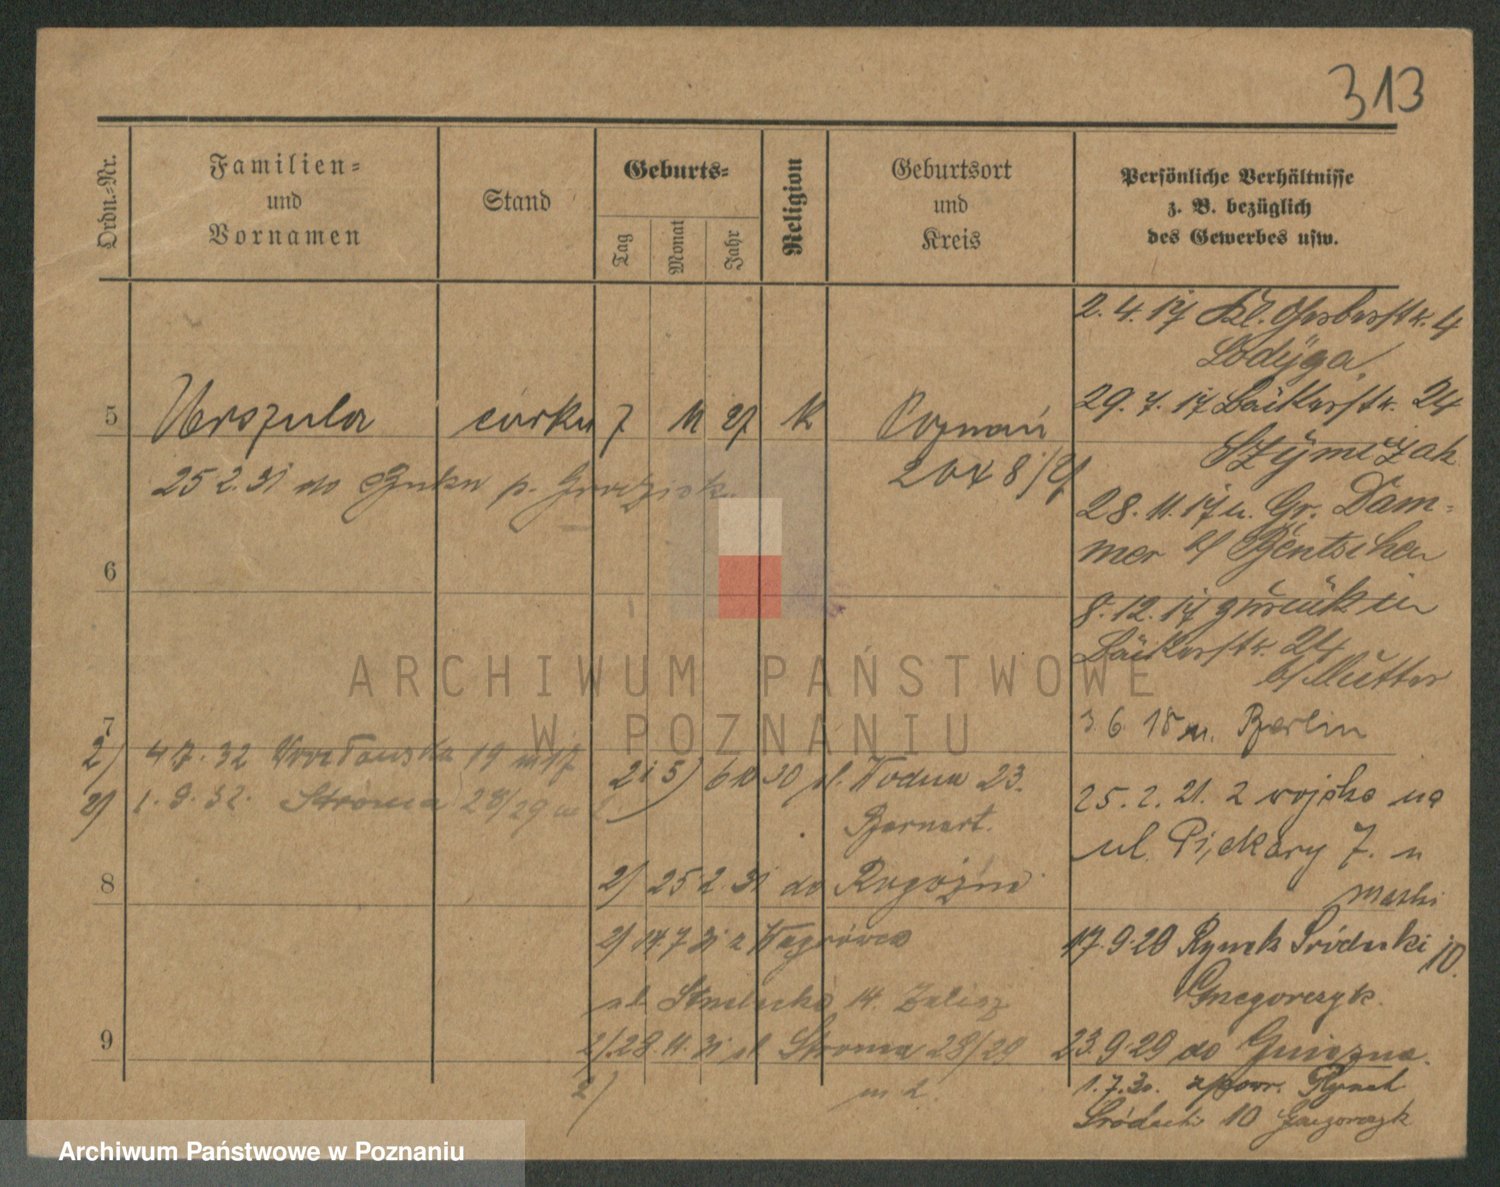 313
Ordn.-Nr.
Familien-
und
Vornamen
Stand
Geburts-
Tag
Monat
Jahr
Religion
Geburtsort
und
Kreis
Persönliche Verhältnisse
z. B. bezüglich
des Gewerbes usw.
5
Urszula córka 7 11 27 k Poznań
25 2. 31 do p. Grodzisk.
6
7
2) 4 7. 32 Wrocławska 19 m 17
2) 1. 9. 32. Stroma 28/29 m
8
9
5) 6 10 30 ul. Wodna 23.
Bernart.
2) 25 2. 31 do Rogoźna
2) 14 7 31 z Wągrówca
ul. Strzelecka 14.
2) 28. 11. 31 ul Stroma 28/29
2)
2. 4. 17 Kl. Gerberstr. 4
Lodÿga,
29. 7. 17 Bäckerstr. 24
Szÿmczak
28. 11. 17 n. Gr. Dam-
mer b/ Bentschen
8. 12. 17 zurück in
Bäckerstr. 24
b/ Mutter
3. 6. 18 n. Berlin
25. 2. 21. z wojska na
ul. Piekary 7. u
matki
17. 9. 20 Rynek Śródecki 10.
Grzegorczyk.
23. 9. 29 do Gniezna.
1. 7. 30. z powr. Rynek
Śródecki 10 Grzegorczyk
ARCHIWUM PAŃSTWOWE
W POZNANIU
Archiwum Państwowe w Poznaniu